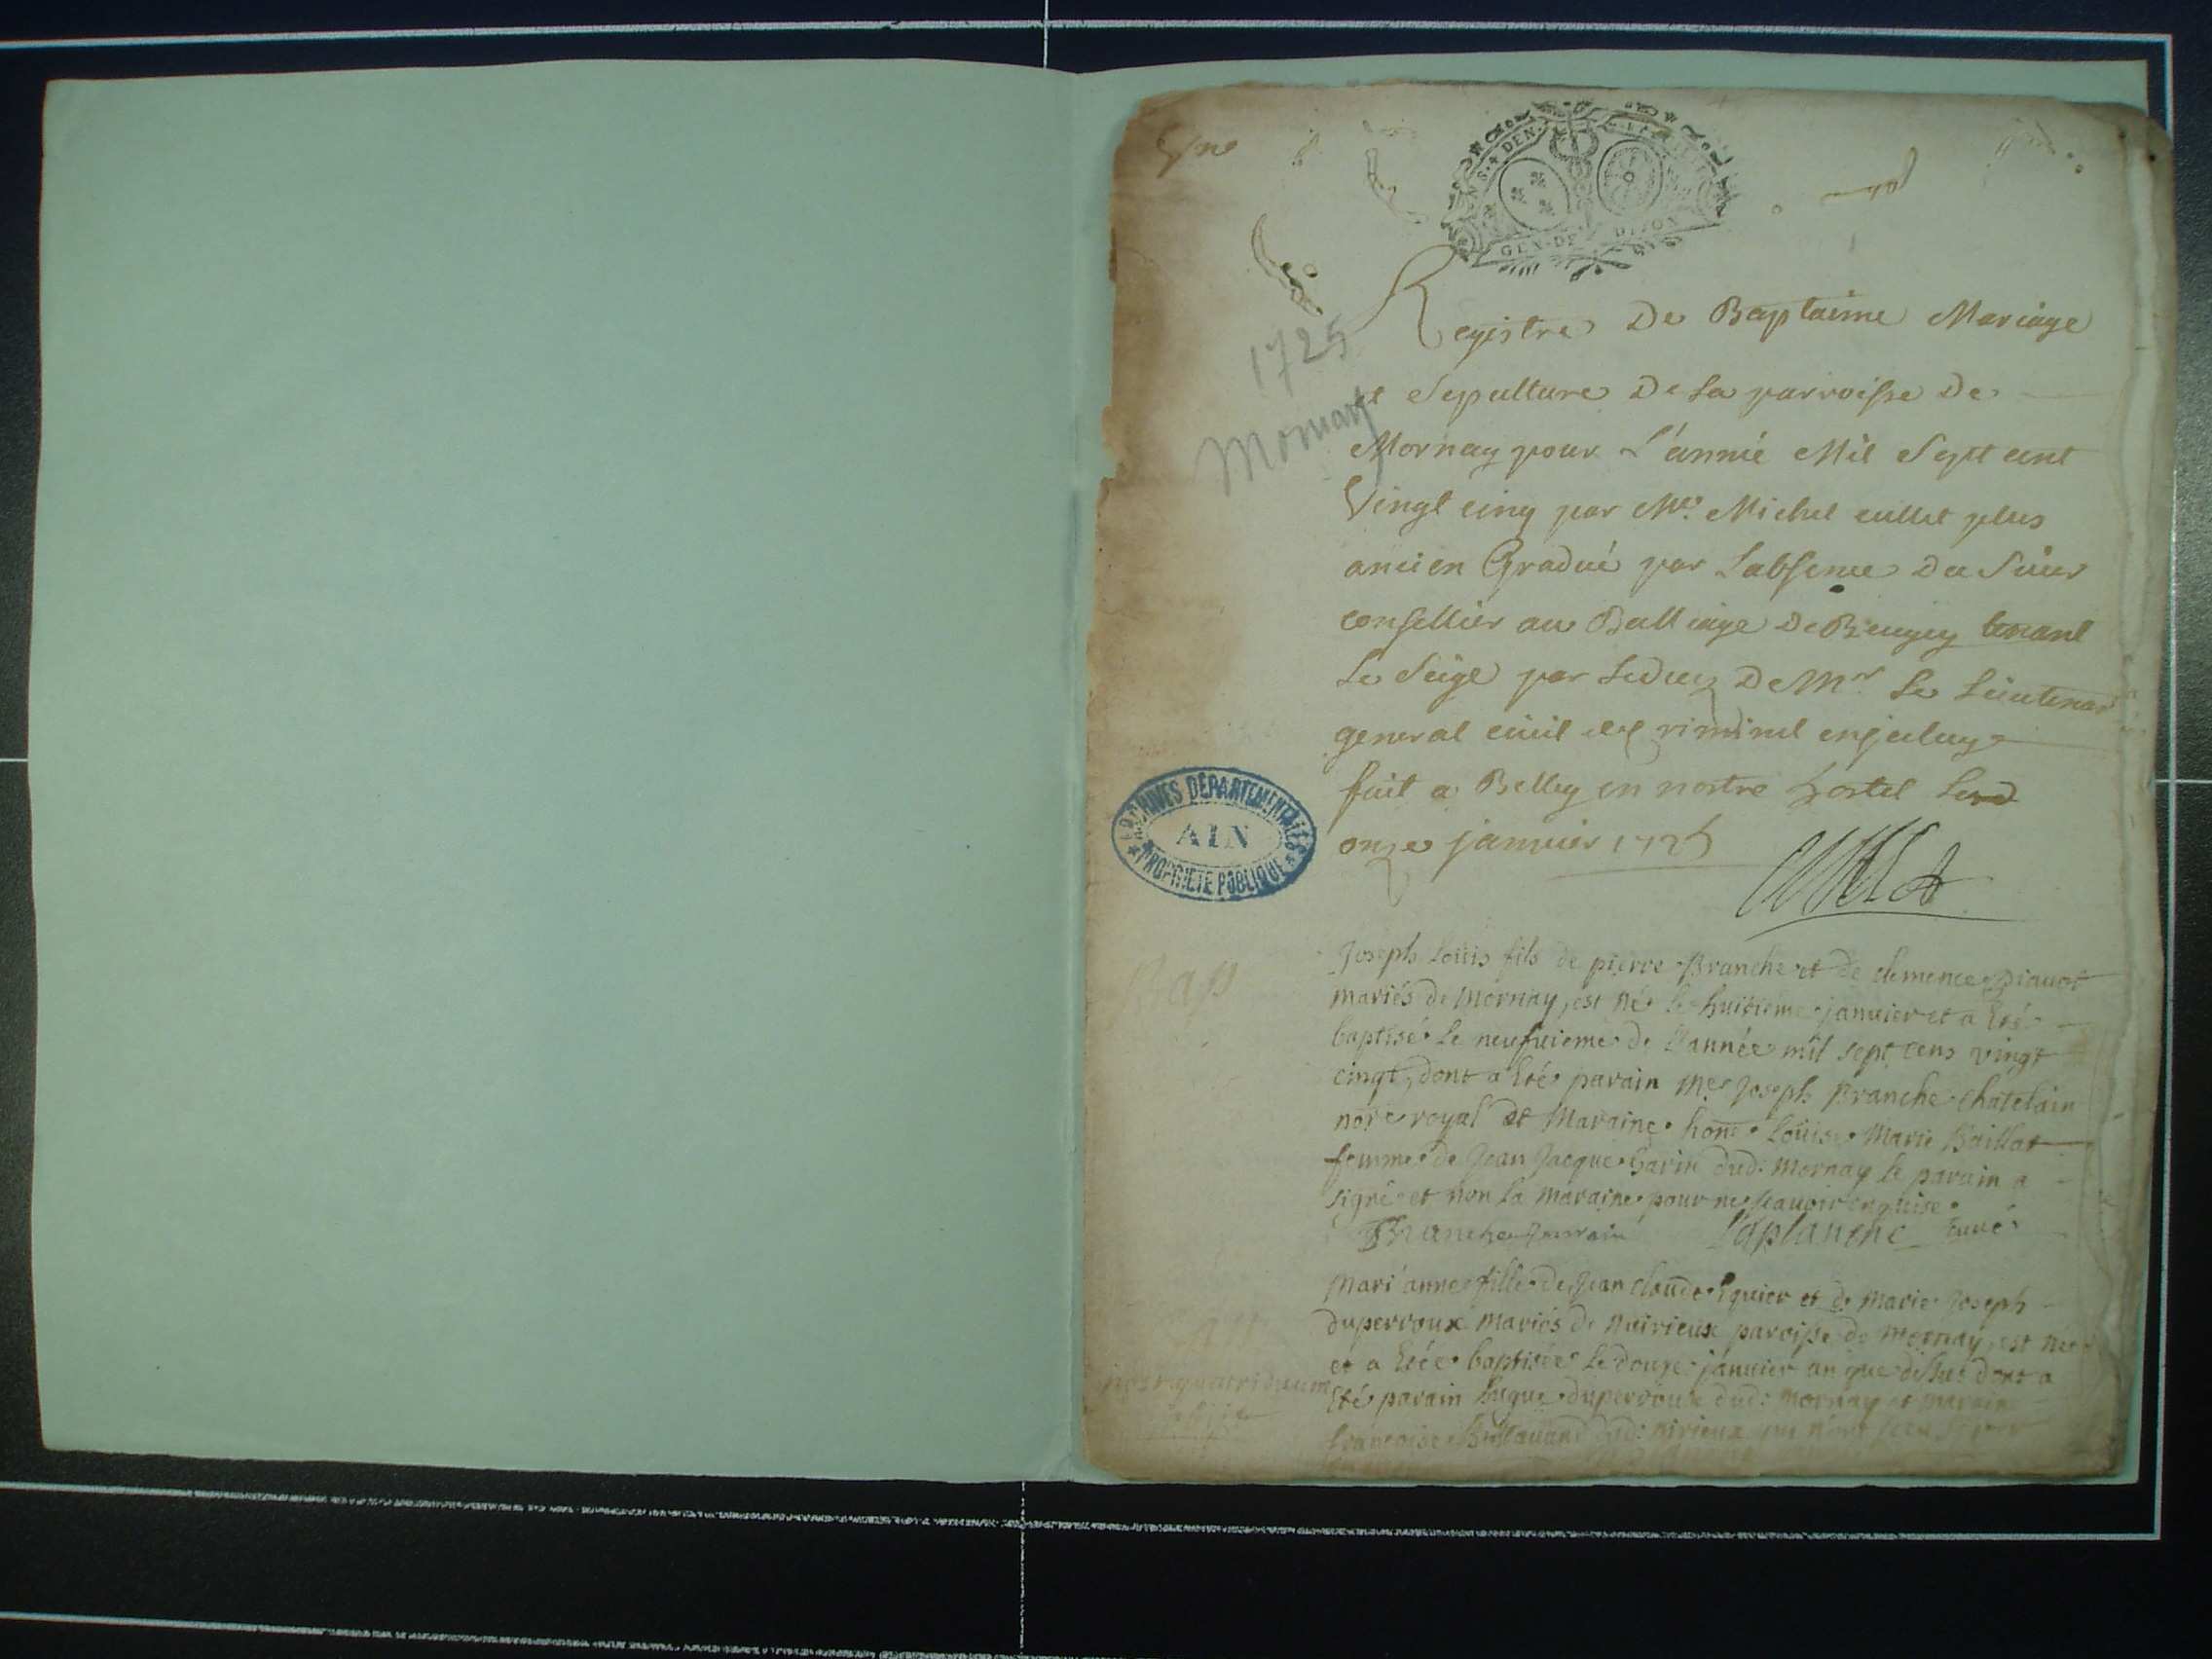 GEN. DE DIJON
1725
Mornay
Registre De Baptaime Mariage
et Sepulture De la parroisse De
Mornay pour L'année Mil Sept cent
Vingt cinq par Me. Michel cullet plus
ancien Gradué par Labsence du Sieur
consellier au Balliage De Beugey tenant
Le Siege par Deces De Mr Le Lieutenant
general civil et criminel
fait a Belley en nostre hostel Le
onze janvier 1725
Cullet
ARCHIVES DÉPARTEMENTALES
AIN
PROPRIETE PUBLIQUE
Bap
Joseph Loüis fils de pierre Branche et de clemence
mariés de Mornay, est né le huitieme janvier et a Eté
baptisé le neufvieme de l'année mil sept cens vingt
cinqt, dont a Eté parain Me Joseph Branche chatelain
nore royal et Maraine hone Loüise Marie Baillat
femme de Jean Jacque Garin dud: Mornay le parain a
signé et non la maraine pour ne scavoir enquise
Branche parrain Laplanche Curé
Mari anne fille de Jean claude et de Marie Joseph
duperroux mariés de Nuirieux paroisse de Mornay, est nee
et a Etée baptisée le douze janvier an que dessus dont a
Eté parain hugue duperroux dud: mornay et maraine
francoise dud: nirieux qui n'ont sceu